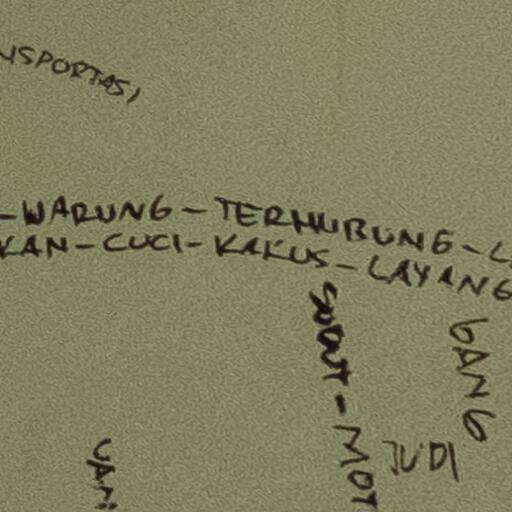 NSPORTASI
-WARUNG-TERHUBUNG-L
KAN-CUCI-KAKUS-LAYANG
GANG
JUDI